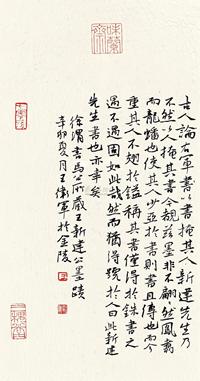 古人論右軍以書掩其人新建先生乃
不然以掩其書今觀茲墨非不翩然鳳翥
而龍蟠也使其人少亞於書則書且傳也而今
重其人不翅於鎰稱其書僅得於銖書之
遇不遇固如此哉然而猶得號於人曰此新建
先生書也亦幸矣
徐渭書馬公所藏王新建公墨蹟
辛卯夏月王衛軍於金陵